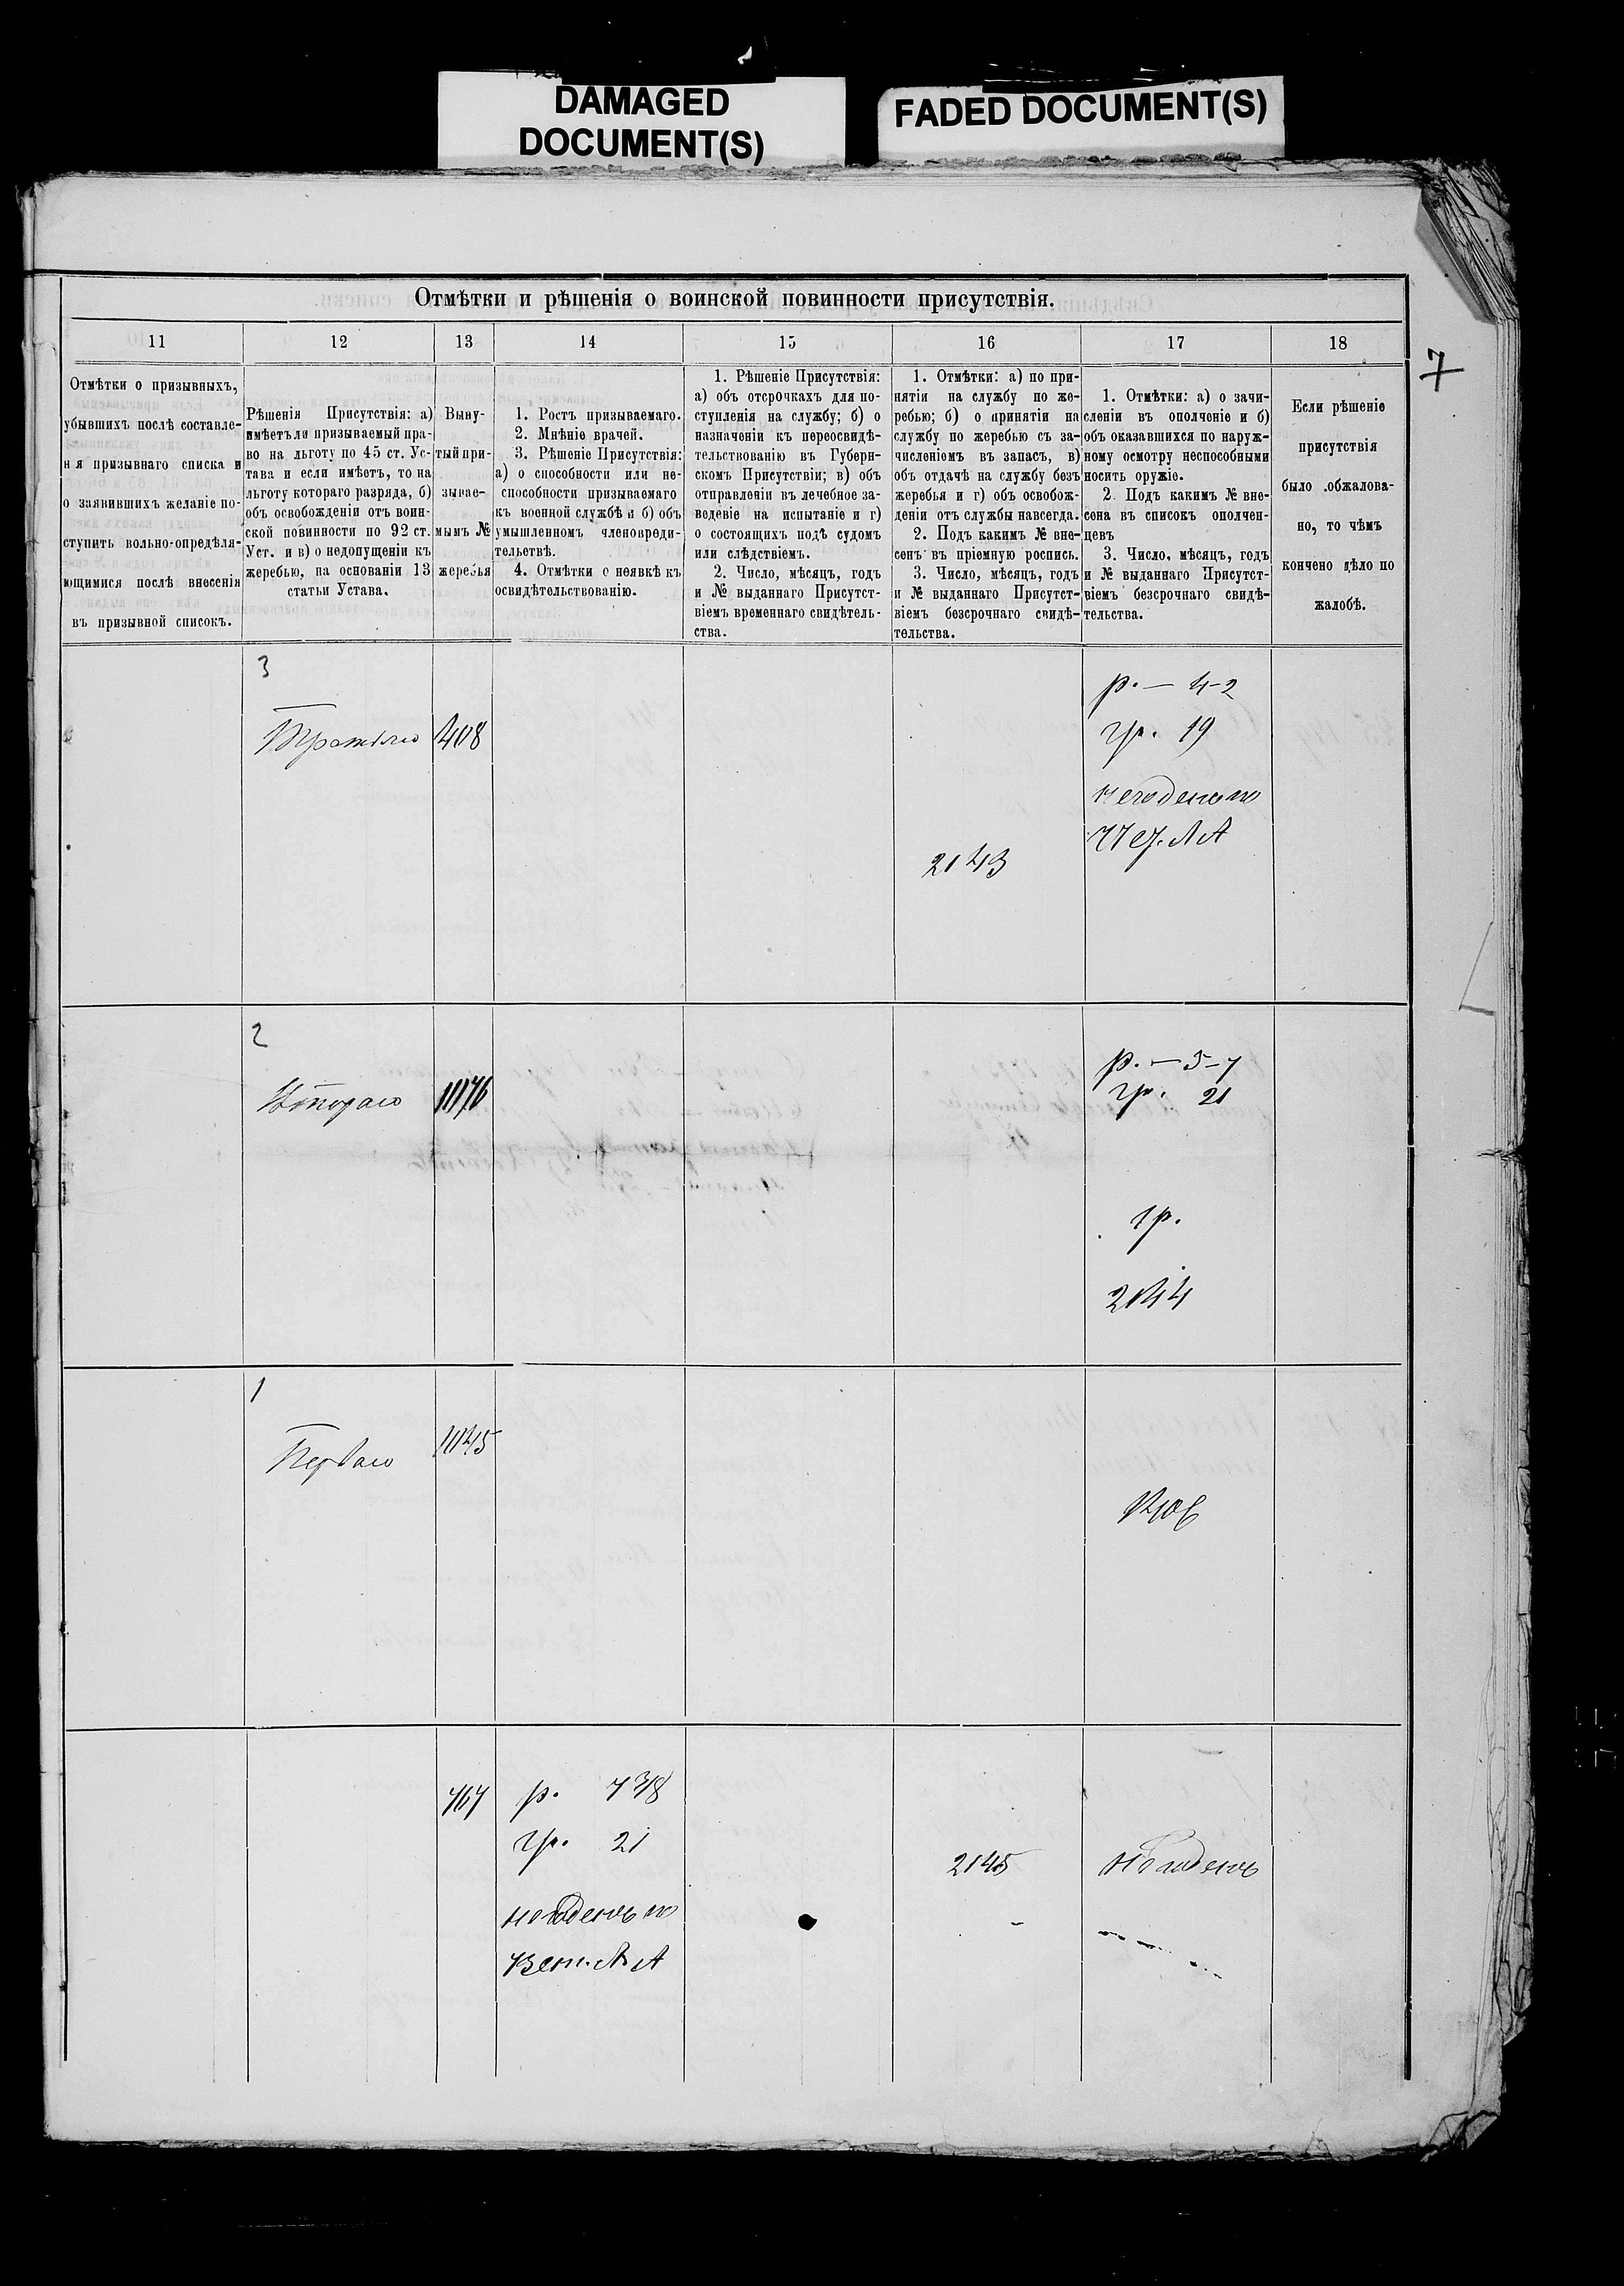 DAMAGED
DOCUMENT(S)
FADED DOCUMENT(S)
7
Отмѣтки и рѣшенія о воинской повинности присутствія.
11 12 13 14 15 16 17 18
Отмѣтки о призывныхъ,
убывшихъ послѣ составле-
нія призывнаго списка и
о заявившихъ желаніе по-
ступить вольно-опредѣля-
ющимися послѣ внесенія
въ призывной списокъ.
Рѣшенія Присутствія: а)
имѣетъ ли призываемый пра-
во на льготу по 45 ст. Ус-
тава и если имѣетъ, то на
льготу котораго разряда, б)
объ освобожденіи отъ воин-
ской повинности по 92 ст.
Уст. и в) о недопущеніи къ
жеребью, на основаніи 13
статьи Устава.
Выну-
тый при-
зывае-
мымъ №
жеребья
1. Ростъ призываемаго.
2. Мнѣніе врачей.
3. Рѣшеніе Присутствія:
а) о способности или не-
способности призываемаго
къ военной службѣ и б) объ
умышленномъ членовреди-
тельствѣ.
4. Отмѣтки о неявкѣ къ
освидѣтельствованію.
1. Рѣшеніе Присутствія:
а) объ отсрочкахъ для по-
ступленія на службу; б) о
назначеніи къ переосвидѣ-
тельствованію въ Губерн-
скомъ Присутствіи; в) объ
отправленіи въ лечебное за-
ведевіе на испытаніе и г)
о состоящихъ подъ судомъ
или слѣдствіемъ.
2. Число, мѣсяцъ, годъ
и № выданнаго Присутст-
віемъ временнаго свидѣтель-
ства.
1. Отмѣтки: а) по при-
нятіи на службу по же-
ребью; б) о принятіи на
службу по жеребью съ за-
численіемъ въ запасъ, в)
объ отдачѣ на службу безъ
жеребья и г) объ освобож-
деніи отъ службы навсегда.
2. Подъ какимъ № вне-
сенъ въ пріемную роспись.
3. Число, мѣсяцъ, годъ
и № выданнаго Присутст-
віемъ безсрочнаго свидѣ-
тельства.
1. Отмѣтки: а) о зачи-
сленіи въ ополченіе и б)
объ оказавшихся по наруж-
ному осмотру неспособными
носить оружіе.
2. Подъ какимъ № вне-
сена въ список ополчен-
цевъ
3. Число, мѣсяцъ, годъ
и № выданнаго Присутст-
віемъ безсрочнаго свидѣ-
тельства.
Если рѣшеніе
присутствія
было обжалова-
но, то чѣмъ
кончено дѣло по
жалобѣ.
3
Третьяго
408
2143
р. — 4-2
гр. 19
негоденъ по
2
Втораго
р. — 5-7
гр. 21
1р.
2144
1
Перваго
767
р. 7 3/8
гр. 21
негоденъ по
2145
негоденъ